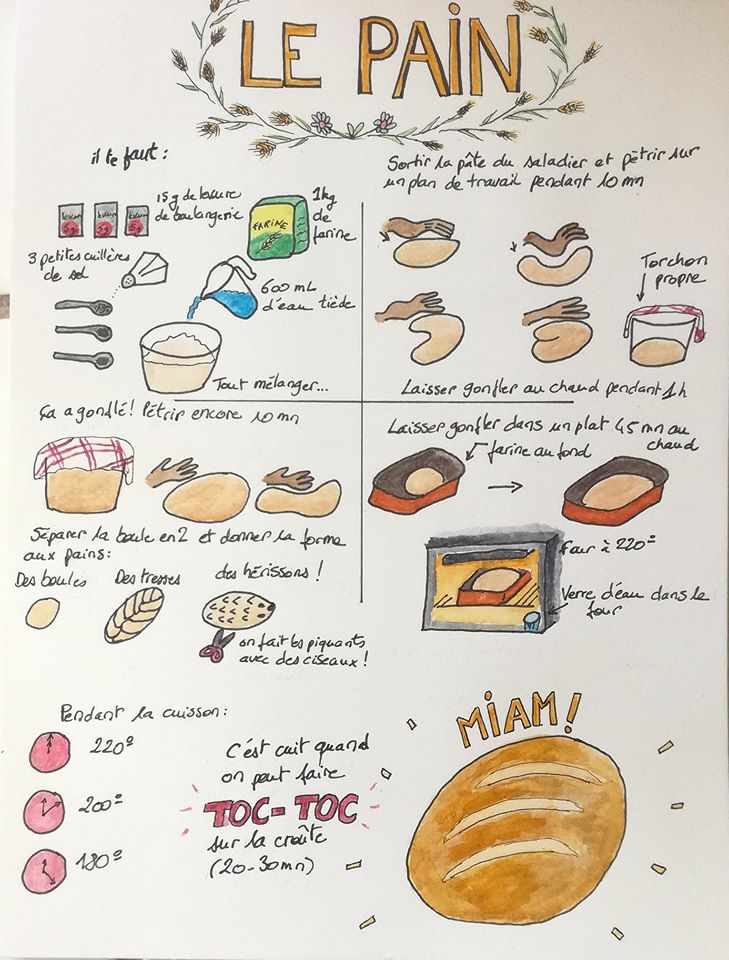 LE PAIN
il te faut :
15g de levure
de boulangerie
levure 5g
levure 5g
levure 5g
FARINE
1kg
de
farine
3 petites cuillères
de sel
600 mL
d'eau tiède
Tout mélanger...
Sortir la pâte du saladier et pétrir sur
un plan de travail pendant 10 mn
Torchon
propre
Laisser gonfler au chaud pendant 1h
Ça a gonflé! Pétrir encore 10 mn
Séparer la boule en 2 et donner la forme
aux pains :
Des boules
Des tresses
des hérissons !
on fait les piquants
avec des ciseaux !
Laisser gonfler dans un plat 45 mn au
chaud
farine au fond
Four à 220°
Verre d'eau dans le
four
Pendant la cuisson :
220°
200°
180°
C'est cuit quand
on peut faire
TOC-TOC
sur la croûte
(20-30mn)
MIAM!